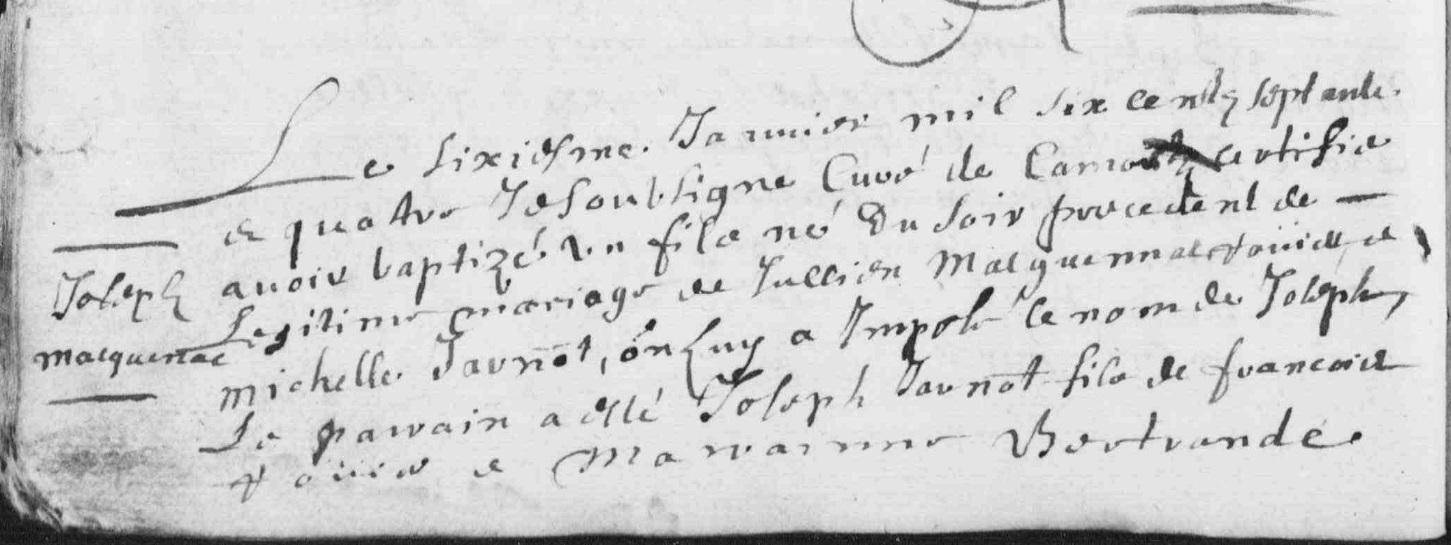 Le sixiesme Janvier mil six cents septante
et quatre Je soubsigne Curé de Camo certifie
Joseph avoir baptizé un fils né du soir precedent de
macquenac Legitime mariage de Jullien Macquennac et
michelle Jarnot, on Luy a Imposé le nom de Joseph,
Le parain a esté Joseph Jarnot fils de francois
et Bertrande.